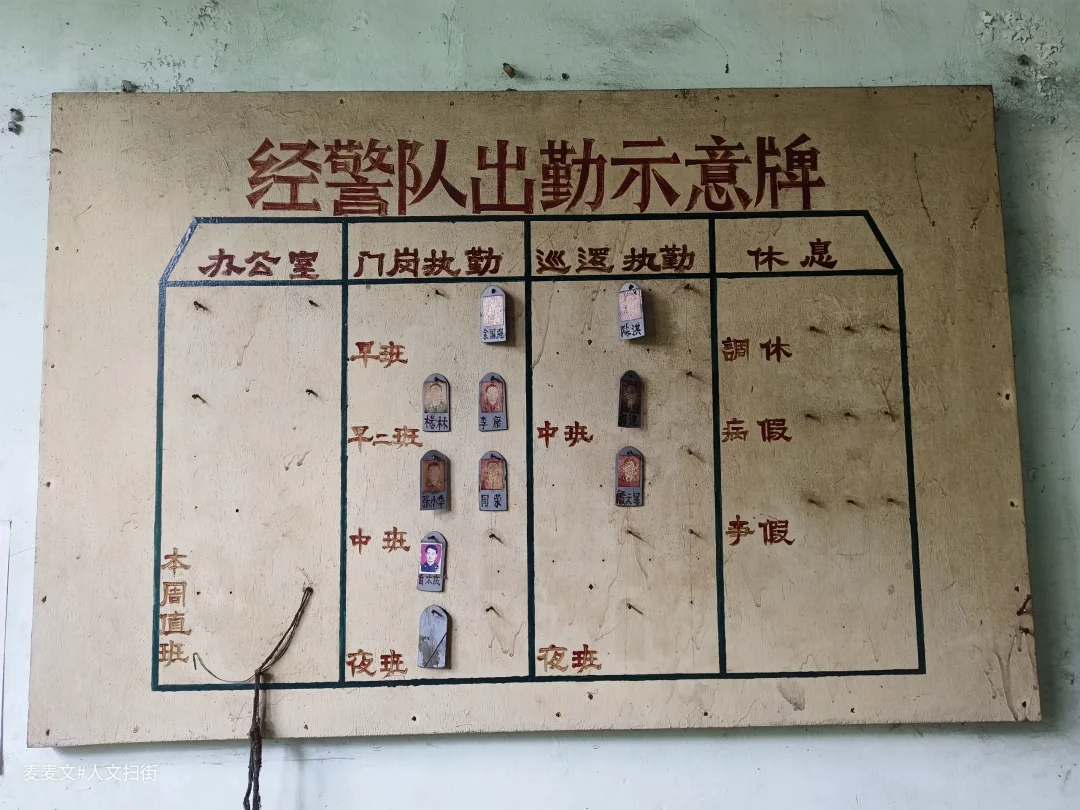 经警队出勤示意牌
办公室
门岗执勤
巡逻执勤
休息
早班
調休
杨林
李康
早二班
中班
病假
张小华
周荣
中班
事假
本周值班
夜班
夜班
陈洪
麦麦文#人文扫街